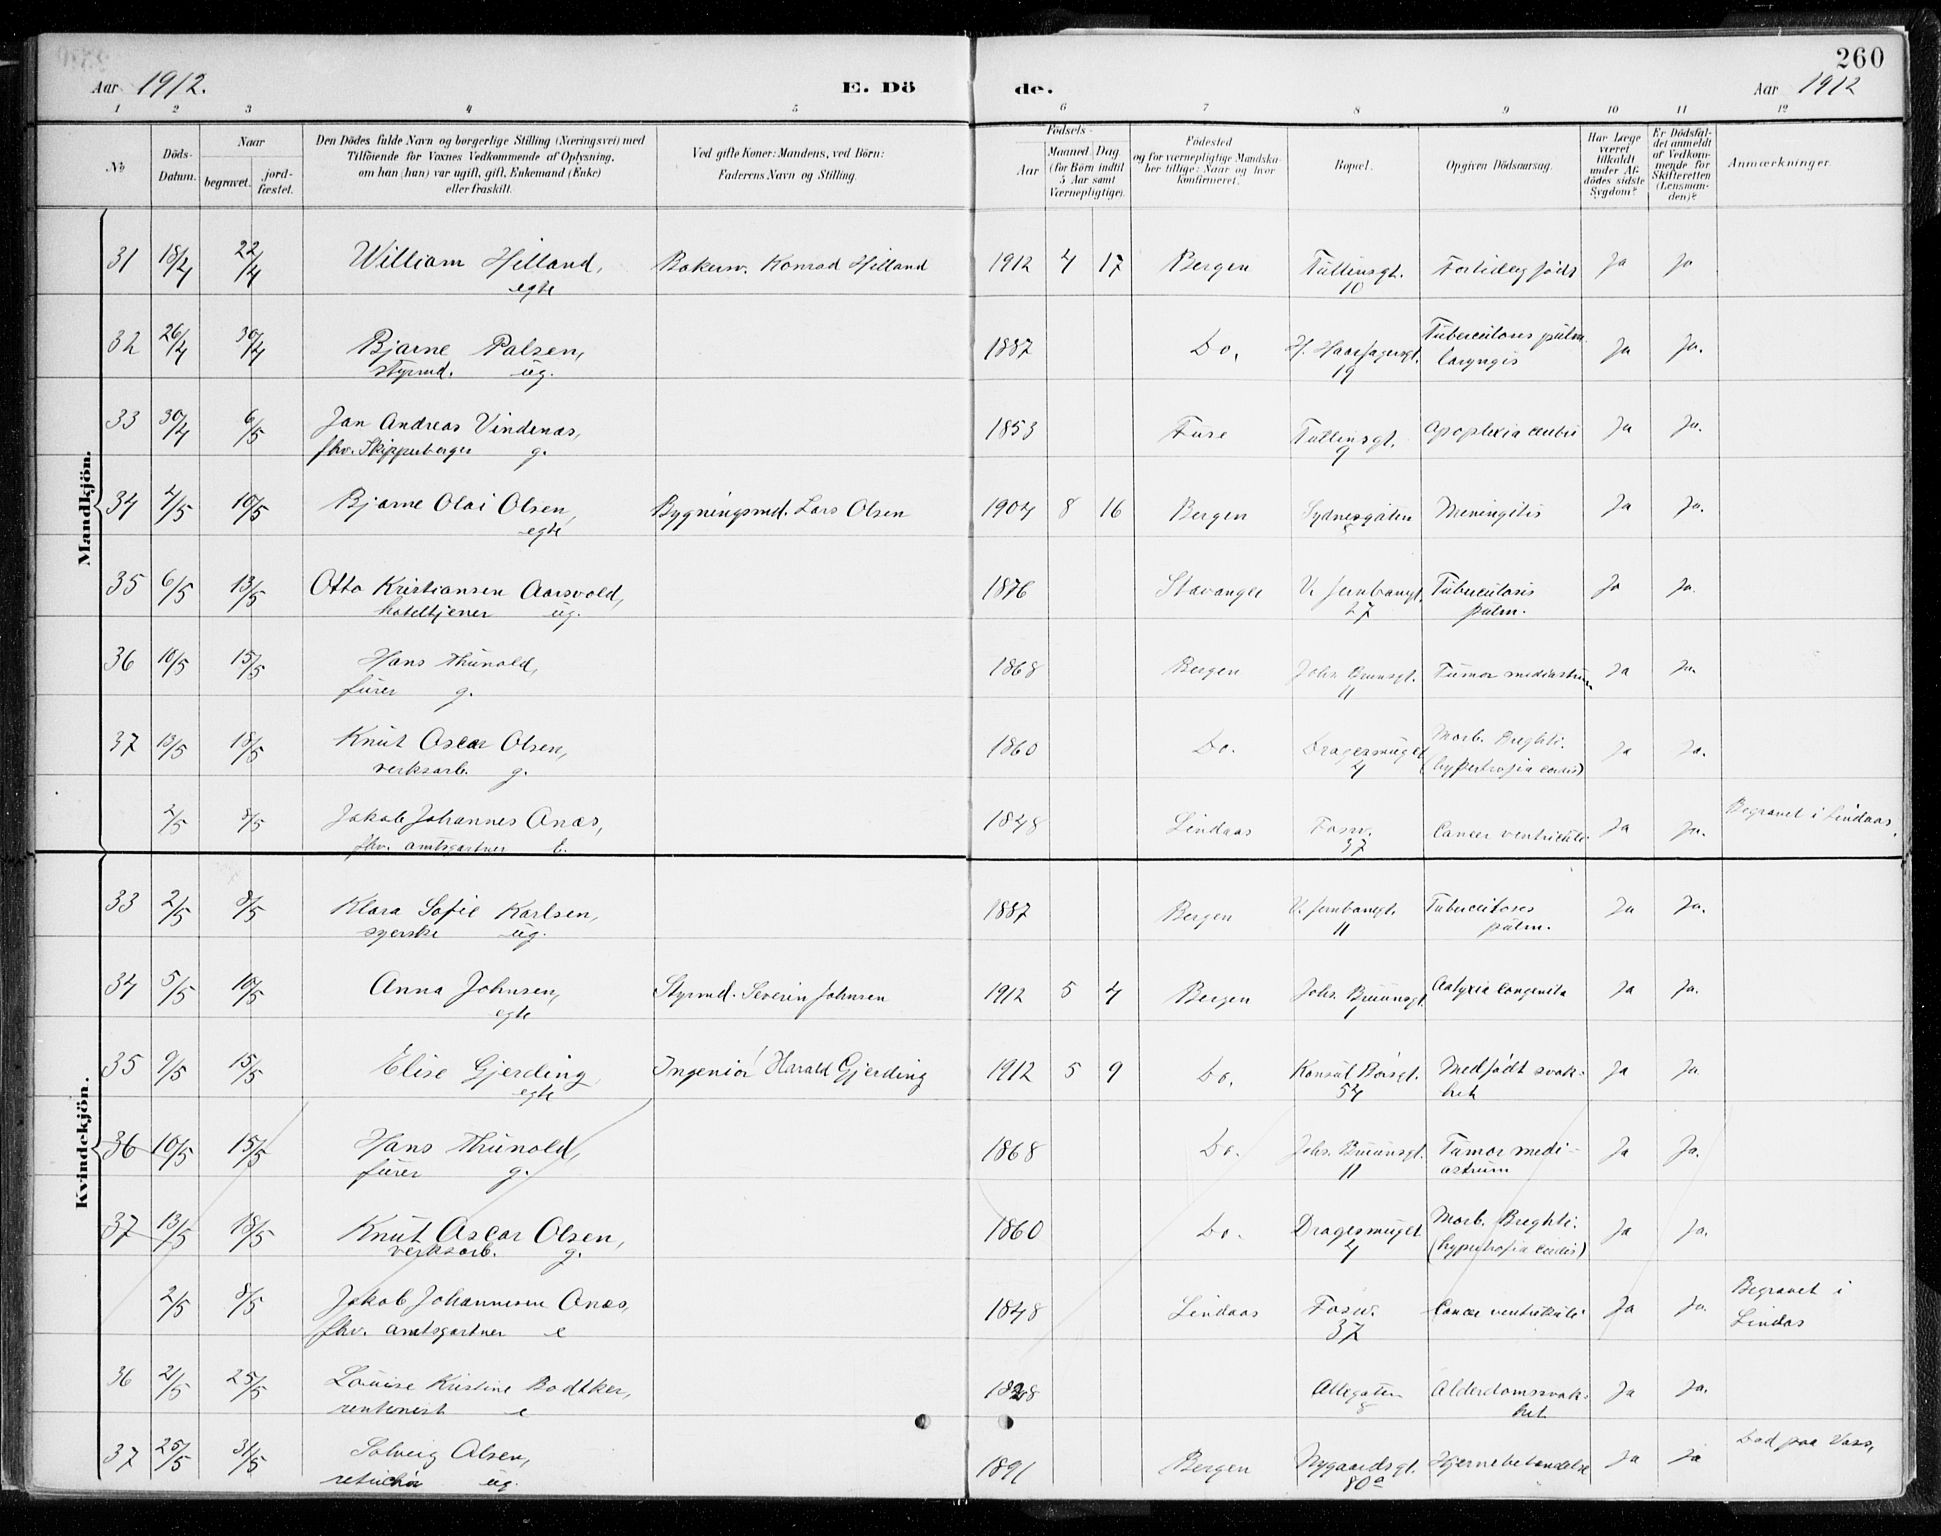 260
Aar 1912. E. Dö de. Aar 1912
1 2 3 4 5 6 7 8 9 10 11 12
No
Döds-Datum.
Naar begravet. jordfæstet.
Den Dödes fulde Navn og borgerlige Stilling (Næringsvei) med Tilföiende for Voxnes Vedkommende af Oplysning, om han (hun) var ugift, gift, Enkemand (Enke) eller fraskilt.
Ved gifte Koner: Mandens, ved Börn: Faderens Navn og Stilling.
Födsels-
Aar Maaned Dag (for Börn indtil 5 Aar samt Værnepligtige).
Födested og for værnepligtige Mandskaber tillige: Naar og hvor konfirmeret.
Bopæl.
Opgiven Dödsaarsag.
Har Læge været tilkaldt under Afdödes sidste Sygdom?
Er Dödsfaldet anmeldt af Vedkommende for Skifteretten (Lensmanden)?
Anmærkninger.
Mandkjön.
31 18/4 22/4 William Hilland, Bakersv. Konrad Hilland 1912 4 17 Bergen Tullinsgt. Fortidlig född Ja Ja
egte 10
32 26/4 30/4 Bjarne Palsen, 1887 Do. H. Haarfagersgt. Tuberculoses pulm. Ja Ja.
styrmd. ug. 19 laryngis
33 30/4 6/5 Jan Andreas Vindenas, 1853 Fuse Tullinsgt. Apoplexia cerebri Ja Ja.
fhv. Skipperborger g. 9
34 4/5 10/5 Bjarne Olai Olsen, Bygningsmd. Lars Olsen 1904 8 16 Bergen Sydnesgaten Meningitis Ja Ja.
egte
35 6/5 13/5 Otto Kristiansen Aarsvold, 1876 Stavanger V. Jernbanegt. Tuberculosis Ja Ja.
hoteltjener ug. 27 pulm.
36 10/5 15/5 Hans Thunold, 1868 Bergen Johs. Bruunsgt. Tumor mediastrum Ja Ja.
furer g. 11
37 13/5 18/5 Knut Oscar Olsen, 1860 Do. Dragesmuget Morb. Breghti. Ja Ja.
verksarb. g. 4 (hypertrofia cordis)
2/5 8/5 Jakob Johannes Onæs, 1848 Lindaas Fosw. Cancer ventriculi Ja Ja. Begravet i Lindaas.
fhv. amtsgartner E. 37
Kvindekjön.
33 2/5 8/5 Klara Sofie Karlsen, 1887 Bergen V. Jernbanegt. Tuberculoses Ja Ja.
syerske ug. 11 pulm.
34 5/5 10/5 Anna Johnsen, Styrmd. Severin Johnsen 1912 5 4 Bergen Johs. Bruunsgt. Asfyxia congenita Ja Ja.
egte 1
35 9/5 15/5 Elise Gjerding Ingeniör Harald Gjerding 1912 5 9 Do. Konsul Børsgt. Medfødt svak- Ja Ja
egte 54 het
36 10/5 15/5 Hans Thunold, 1868 Do. Johs. Bruunsgt. Tumor medi- Ja Ja.
furer g. 11 astrum
37 13/5 18/5 Knut Oscar Olsen, 1860 Do. Dragesmuget Morb. Breghti. Ja Ja.
verksarb. g. 4 (hypertrofia cordis)
2/5 8/5 Jakob Johannesen Onæs, 1848 Lindaas Fosw. Cancer ventrikuli Ja Ja. Begravet i
fhv. amtsgartner e 37 Lindas
36 21/5 25/5 Louise Kristine Bodtker, 1828 Allegaten Alderdomssvak- Ja Ja.
rentenist e 8 het
37 25/5 31/5 Solveig Olsen, 1891 Bergen Nygaardsgt. Hjernebetendelse Ja Ja Död paa Voss.
ug. 80a